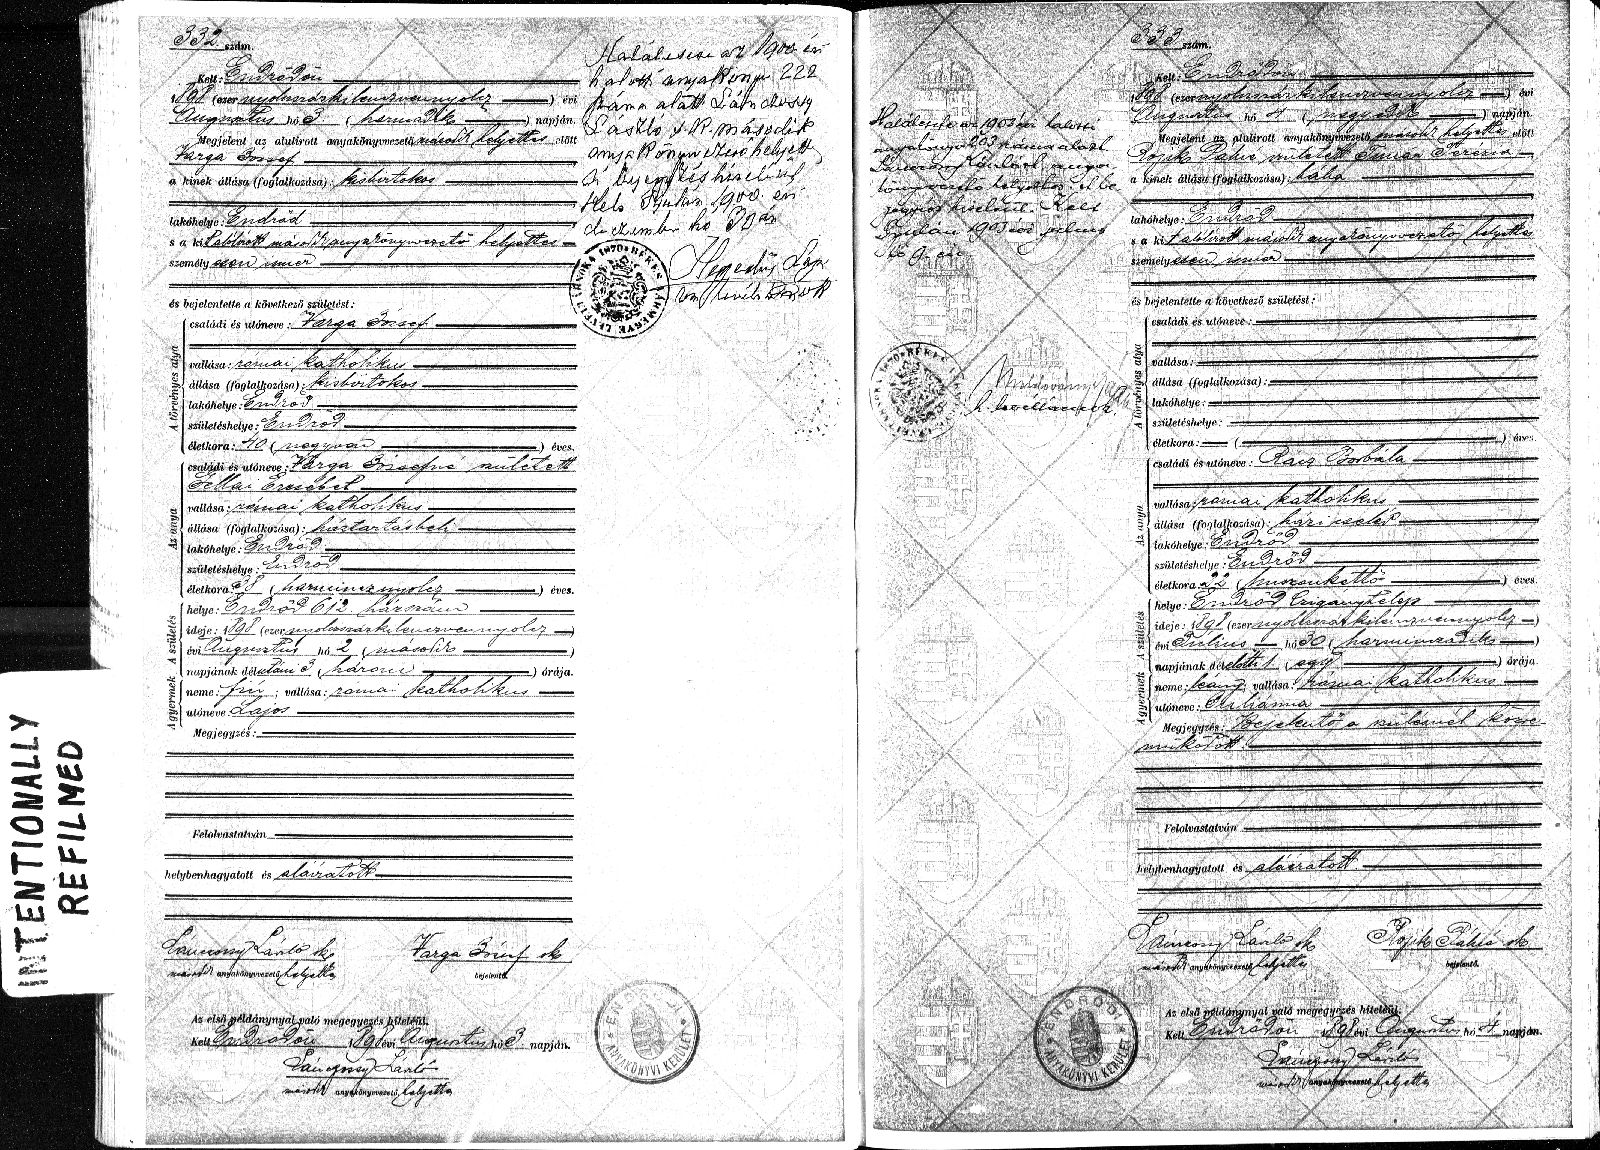 332 szám.
Kelt: Endrődön
1898 (ezernyolcszázkilenczvennyolcz) évi
Augusztus hó 3. (harmadik) napján.
Megjelent az alulirott anyakönyvvezető második helyettes előtt
Varga József
a kinek állása (foglalkozása): kisbirtokos
lakóhelye: Endrőd
s a kit alólirott második anyakönyvvezető helyettes
személyesen ismer
és bejelentette a következő születést:
A törvényes atya
családi és utóneve: Varga József
vallása: római katholikus
állása (foglalkozása): kisbirtokos
lakóhelye: Endrőd
születéshelye: Endrőd
életkora: 40 (negyven) éves.
Az anya
családi és utóneve: Varga Józsefné született
Erzsébet
vallása: római katholikus
állása (foglalkozása): háztartásbeli
lakóhelye: Endrőd
születéshelye: Endrőd
életkora: 38 (harmincznyolcz) éves.
A születés
helye: Endrőd 612. házszám
ideje: 1898 (ezernyolcszázkilenczvennyolcz)
évi Augusztus hó 2 (második)
napjának délutáni 3 (három) órája.
A gyermek
neme: fiu; vallása: római katholikus
utóneve: Lajos
Megjegyzés:
Felolvastatván
helybenhagyatott és aláiratott
László sk Varga József sk
második anyakönyvvezető helyettes bejelentő.
Az első példánynyal való megegyezés hiteléül.
Kelt Endrődön 1898 évi Augusztus hó 3 napján.
László
második anyakönyvvezető helyettes
Halálesete az 1900 évi
halotti anyakönyv 222
száma alatt
László s. k. második
anyakönyvvezető helyett
bejegyzés hiteléül
Kelt Gyulán 1900 évi
deczember hó 30 án
BÉKÉSVÁRMEGYE LEVÉLTÁRNOKA 1870
ENDRŐDI ANYAKÖNYVI KERÜLET
333 szám.
Kelt: Endrődön
1898 (ezernyolcszázkilenczvennyolcz) évi
Augusztus hó 4 (negyedik) napján.
Megjelent az alulirott anyakönyvvezető második helyettes előtt
született Timár Terézia
a kinek állása (foglalkozása): bába
lakóhelye: Endrőd
s a kit alólirott második anyakönyvvezető helyettes
személyesen ismer
és bejelentette a következő születést:
A törvényes atya
családi és utóneve:
vallása:
állása (foglalkozása):
lakóhelye:
születéshelye:
életkora: ( ) éves.
Az anya
családi és utóneve: Rácz Borbála
vallása: római katholikus
állása (foglalkozása): házi cseléd
lakóhelye: Endrőd
születéshelye: Endrőd
életkora: 22 (huszonkettő) éves.
A születés
helye: Endrőd Czigánytelep
ideje: 1898 (ezernyolcszázkilenczvennyolcz)
évi Julius hó 30 (harminczadik)
napjának délelőtti 1 (egy) órája.
A gyermek
neme: leány; vallása: római katholikus
utóneve: Juliánna
Megjegyzés: Bejelentő a szülésnél közre-
működött.
Felolvastatván
helybenhagyatott és aláiratott
László sk sk
második anyakönyvvezető helyettes bejelentő.
Az első példánynyal való megegyezés hiteléül.
Kelt Endrődön 1898 évi Augusztus hó 4 napján.
László
második anyakönyvvezető helyettes
Halálesete az 1903 évi halotti
Kelt
Gyulán 1903 évi
ENDRŐDI ANYAKÖNYVI KERÜLET
INTENTIONALLY
REFILMED